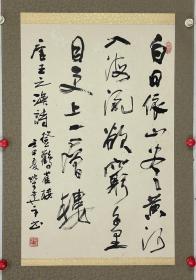 白日依山尽黄河
入海流欲窮千里
目更上一層樓
唐王之渙詩登鸛雀樓